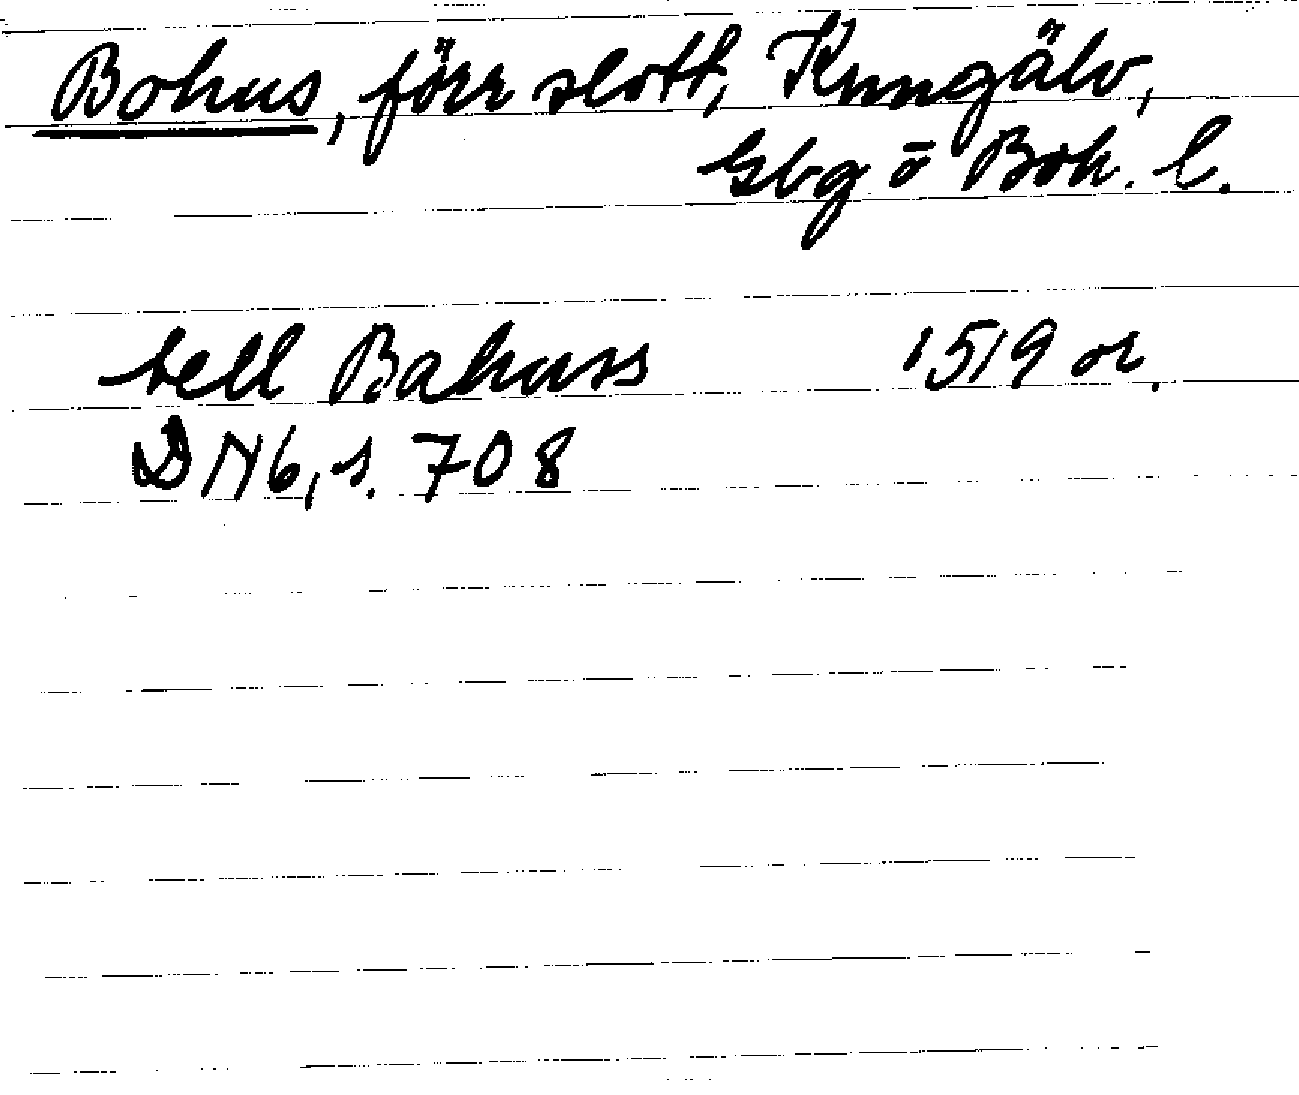 Bohus, förr slott, Kungälv,
Gbg o Boh. l.
tell Bahuss 1519 or.
DN 6, s. 708